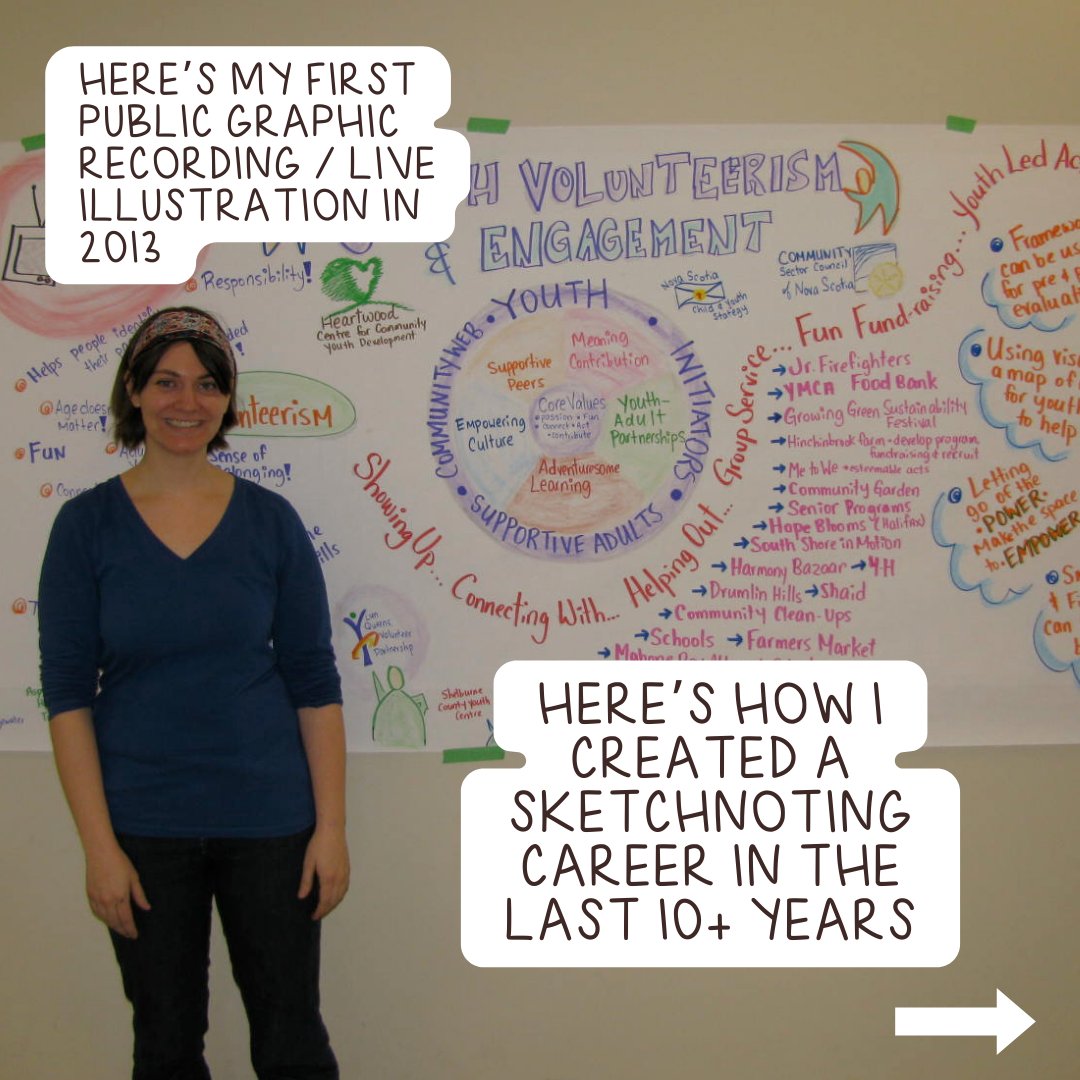 HERE'S MY FIRST
PUBLIC GRAPHIC
RECORDING / LIVE
ILLUSTRATION IN
2013
H VOLUNTEERISM
& ENGAGEMENT
Responsibility!
Heartwood
Centre for Community
Youth Development
Helps people
their
Age does
Matter!
FUN
nteerism
Sense of
longing!
Nova Scotia
Child & Youth
Strategy
COMMUNITY
Sector Council
of Nova Scotia
YOUTH
INITIATORS
SUPPORTIVE ADULTS
COMMUNITY WEB
Meaning
Contribution
Supportive
Peers
Core Values
Passion • Fun
Connect • Act
• contribute
Youth-
Adult
Partnerships
Empowering
Culture
Adventuresome
Learning
Showing Up... Connecting With... Helping Out... Group Service... Fun Fund-raising... Youth Led Ac
→ Jr. Firefighters
→ YMCA Food Bank
→ Growing Green Sustainability
Festival
→ Hinchinbrook Farm → develop program,
fundraising & recruit
→ Me to We → esteemable acts
→ Community Garden
→ Senior Programs
→ Hope Blooms (Halifax)
→ South Shore in Motion
→ Harmony Bazaar → 4H
→ Drumlin Hills → Shaid
→ Community Clean-Ups
→ Schools → Farmers Market
Framew
can be us
for pre & p
evaluati
Using vis
a map of
for yout
to help
Letting
go of the
POWER.
Make the space
to EMPOWER
Lun
Queens
Volunteer
Partnership
Shelburne
County Youth
Centre
HERE'S HOW I
CREATED A
SKETCHNOTING
CAREER IN THE
LAST 10+ YEARS